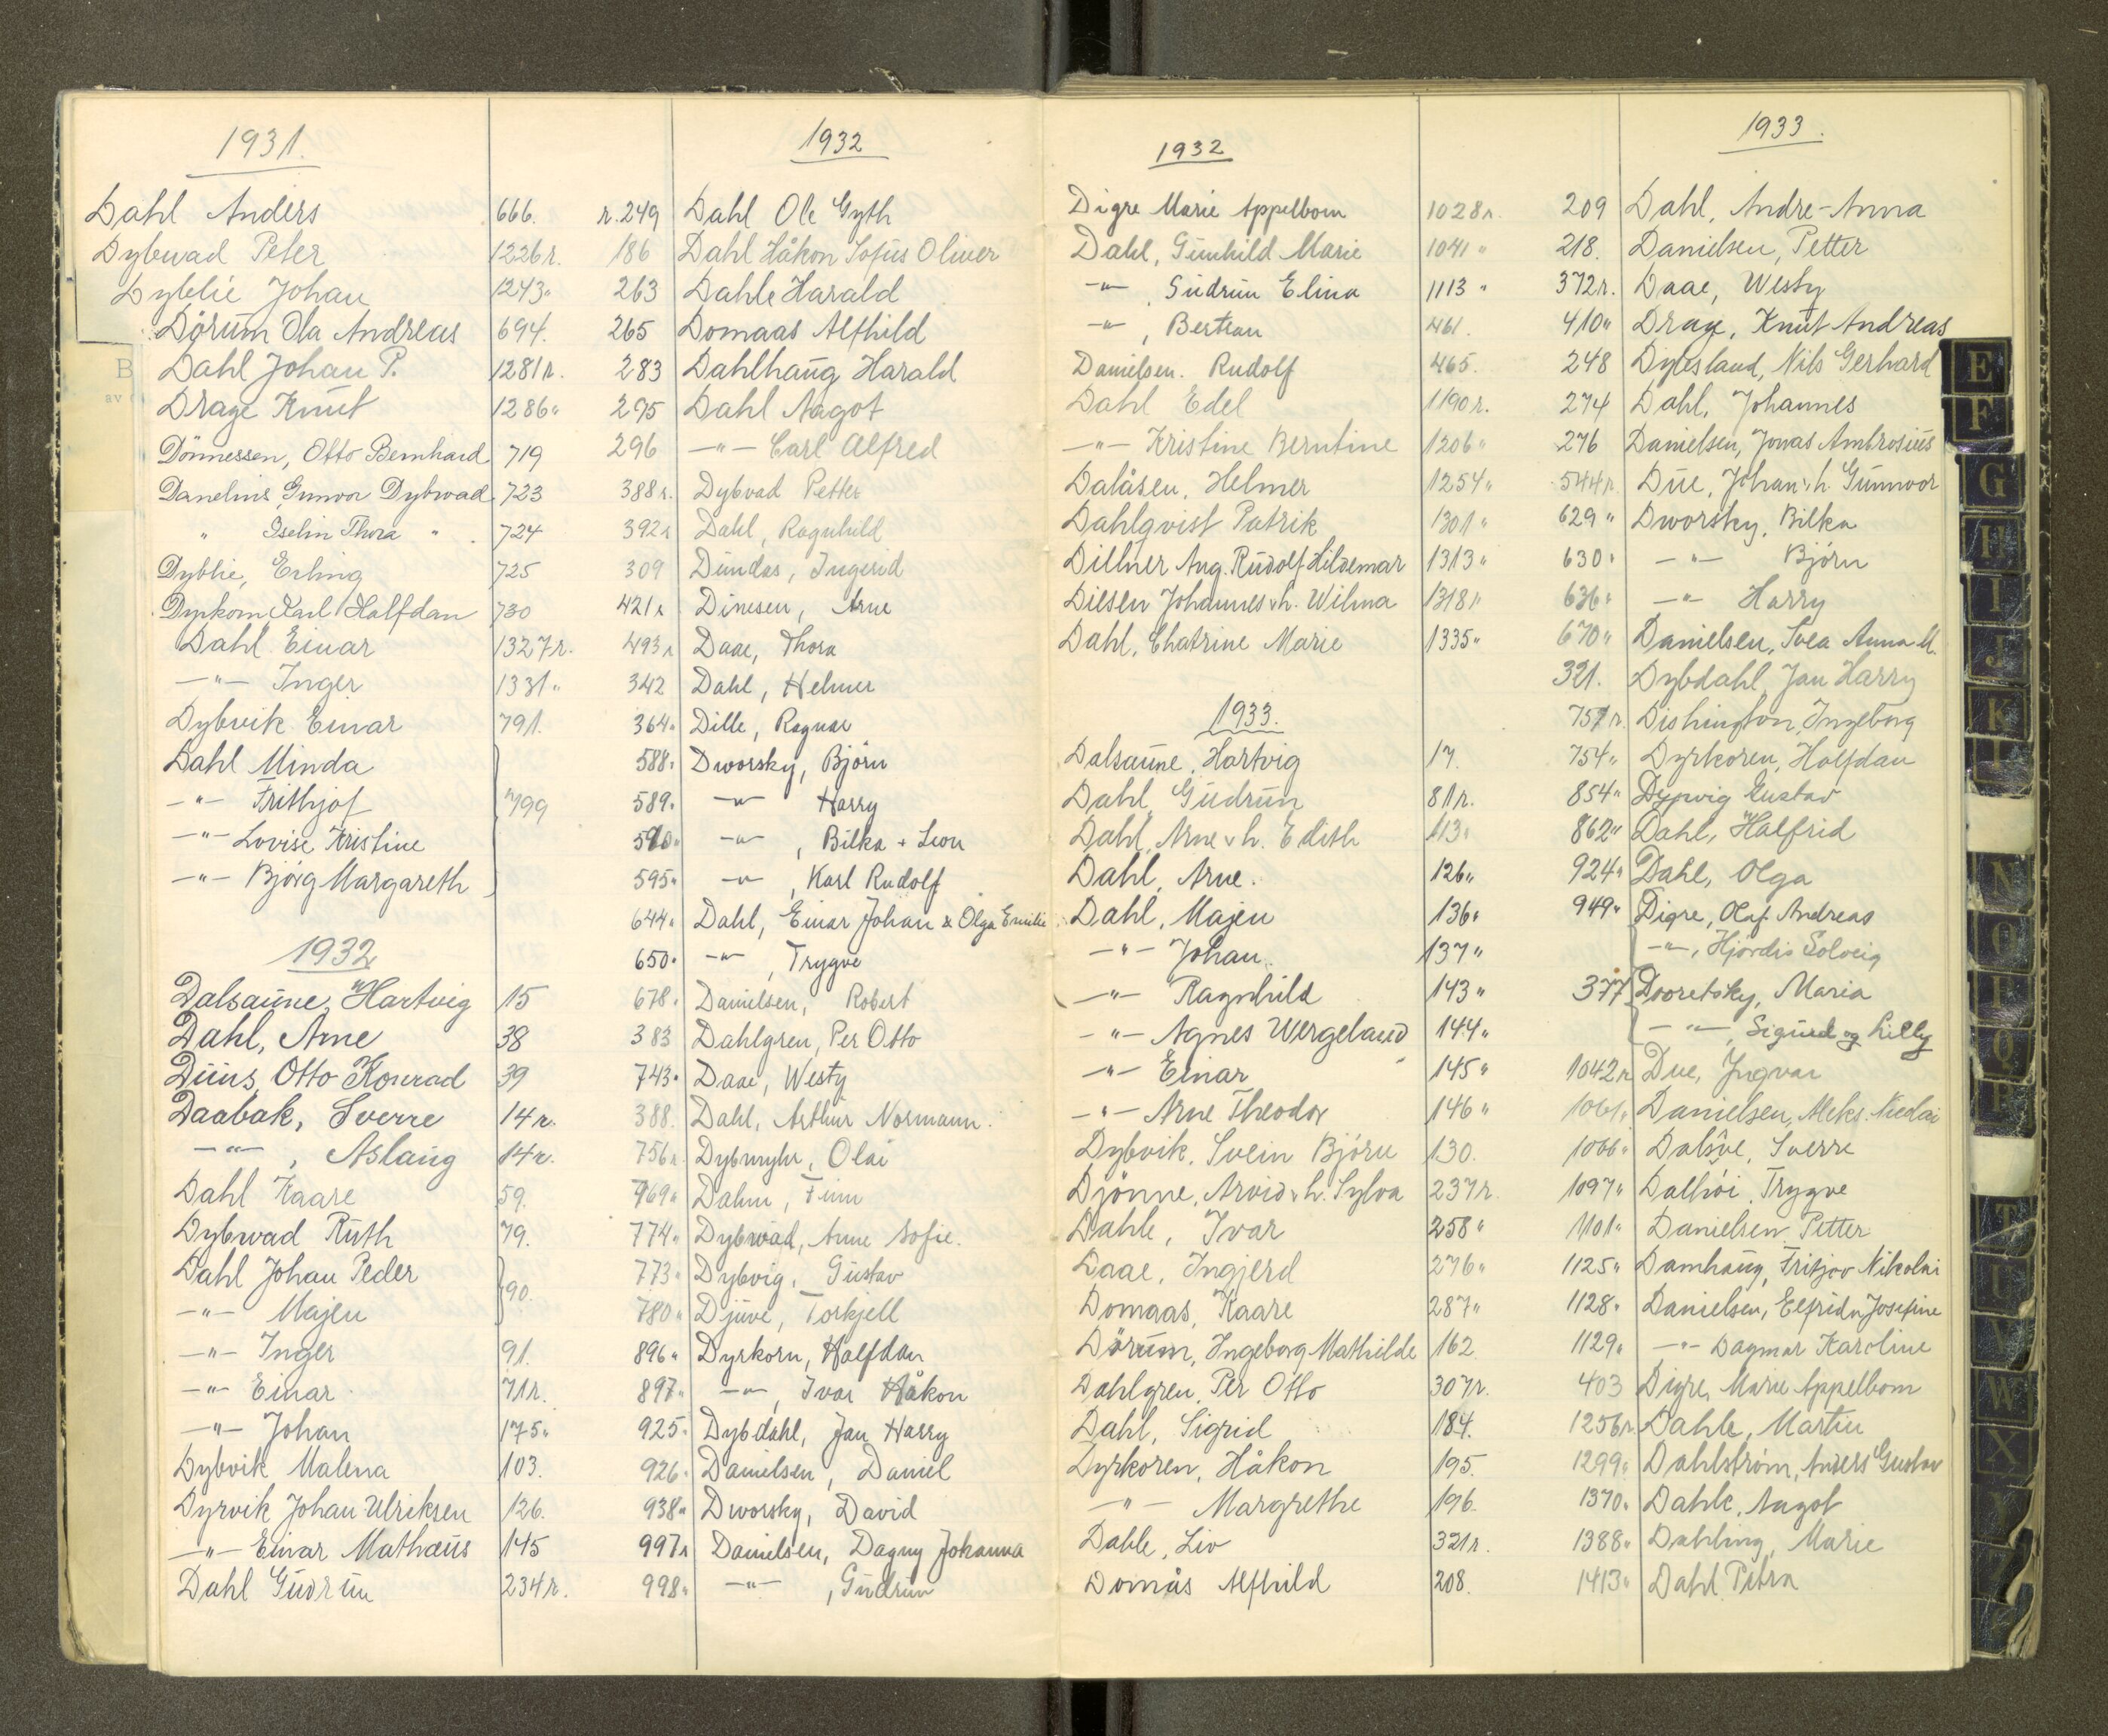 1931.
Dahl Anders 666.
Dybwad Peter 1226 r.
Dyblie Johan 1243 "
Dörum Ola Andreas 694.
Dahl Johan P. 1281 r.
Drage Knut 1286 "
Dönnessen, Otto Bernhard 719
Danelius, Gunvor Dybwad 723
" Iselin Thora " 724
Dyblie, Erling 725
Dyrkorn Karl Halfdan 730
Dahl Einar 1327 r.
-"- Inger 1331 "
Dybvik Einar 791.
Dahl Minda
-"- Frithjof 799
-"- Lovise Kristine
-"- Björg Margareth
1932
Dalsaune, Hartvig 15
Dahl, Arne 38
Duus, Otto Konrad 39
Daabak, Sverre 14 r.
-"-, Aslaug 14 r.
Dahl Kaare 59.
Dybwad Ruth 79.
Dahl Johan Peder
-"- Majen 90.
-"- Inger 91.
-"- Einar 71 r.
-"- Johan 175 "
Dybvik Malena 103.
Dyrvik Johan Ulriksen 126.
-"- Einar Mathæus 145
Dahl Gudrun 234 r.
1932
r. 249 Dahl Ole Gyth
186 Dahl Håkon Sofus Oliver
263 Dahle Harald
265 Domaas Alfhild
283 Dahlhaug Harald
295 Dahl Aagot
296 -"- Carl Alfred
388 r. Dybvad Petter
392 r Dahl, Ragnhild
309 Dundas, Ingerid
421 r Dinesen, Arne
493 r Daae, Thora
342 Dahl, Helmer
364 " Dille, Ragnar
588 " Dworsky, Björn
589 " -"- Harry
590 " -"-, Bilka + Leon
595 " -"-, Karl Rudolf
644 " Dahl, Einar Johan & Olga Emilie
650 " -"-, Trygve
678 " Danielsen, Robert
383 Dahlgren, Per Otto
743 " Daae, Westy
388. Dahl, Arthur Normann.
756 r. Dybmyhr, Olai
769 " Dahm, Finn
774 " Dybwad, Anne Sofie.
773 " Dybvig, Gustav
780 " Djuve, Torkjell
896 " Dyrkorn, Halfdan
897 " -"-, Ivar Håkon
925 " Dybdahl, Jan Harry
926 " Danielsen, Daniel
938 " Dworsky, David
997 r Danielsen, Dagny Johanna
998 " -"-, Gudrun
1932
Digre Marie Appelbom 1028 r.
Dahl, Gunhild Marie 1041 "
-"-, Gudrun Elina 1113 "
-"-, Bertran 461.
Danielsen. Rudolf 465.
Dahl Edel 1190 r.
-"- Kristine Berntine 1206 "
Dalåsen, Helmer 1254 "
Dahlqvist Patrik 1301 "
Dillner Aug. Rudolf Hildemar 1313 "
Diesen Johannes v. h. Wilma 1318 "
Dahl, Chatrine Marie 1335 "
1933.
Dalsaune, Hartvig 17.
Dahl, Gudrun 81 r.
Dahl, Arne v h. Edith 113 "
Dahl, Arne. 126 "
Dahl, Majen 136 "
-"- Johan. 137 "
-"- Ragnhild 143 "
-"- Agnes Wergeland 144 "
-"- Einar 145 "
-"- Arne Theodor 146 "
Dybvik, Svein Björn 130.
Djönne, Arvid v h. Sylva 237 r.
Dahle, Ivar 258 "
Daae, Ingjerd 276 "
Domaas, Kaare 287 "
Dörum, Ingeborg Mathilde 162
Dahlgren, Per Otto 307 r.
Dahl, Sigrid 184.
Dyrkoren, Håkon 195.
-"- Margrethe 196.
Dahle, Liv 321 r.
Domås Alfhild 208.
1933.
209 Dahl, Andre-Anna
218. Danielsen, Petter
372 r. Daae, Westy
410 " Drage, Knut Andreas
248 Dyresland, Nils Gerhard
274 Dahl, Johannes
276 Danielsen, Jonas Ambrosius
544 r. Due, Johan v. h. Gunnvor
629 " Dworsky, Bilka
630 " -"- Björn
636 " -"- Harry
670 " Danielsen, Svea Anna M.
321. Dybdahl, Jan Harry
757 r. Dishington, Ingeborg
754 " Dyrkoren, Halfdan
854 " Dypvig Gustav
862 " Dahl, Halfrid
924 " Dahl, Olga
949 " Digre, Olaf Andreas
-"-, Hjördis Solveig
377 Dvoretsky, Maria
-"-, Sigurd og Lilly
1042 r Due, Ingvar
1061 " Danielsen, Aleks. Nicolai
1066 " Dalsve, Sverre
1097 " Dalhöi, Trygve
1101 " Danielsen, Petter
1125 " Damhaug, Fritjov Nikolai
1128 " Danielsen, Elfrida Josefine
1129 " -"- Dagmar Karoline
403 Digre, Marie Appelbom
1256 r. Dahle, Martin
1299 " Dahlström, Anders Gustav
1370 " Dahle, Aagot
1388 " Dahling, Marie
1413 " Dahl Petra
B
av
E
F
G
H
I
J
K
L
N
O
P
Q
R
T
U
V
W
X
Y
Z